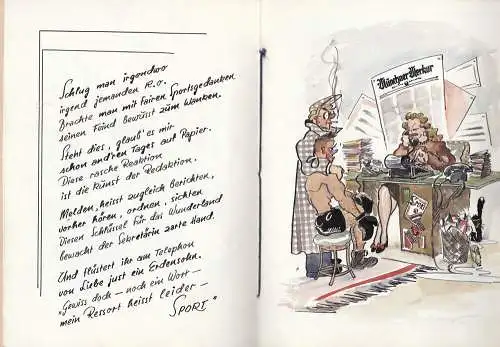 Schlug man irgendwo
irgend jemanden K.o.
Brachte man mit Fairen Sportsgedanken
seinen Feind bewusst zum Wanken.
Steht dies, glaub' es mir
schon andren Tages auf Papier.
Diese rasche Reaktion
ist die Kunst der Redaktion.
Melden, heisst zugleich Berichten,
vorher hören, ordnen, sichten
Diesen Schlüssel für das Wunderland
bewacht der Sekretärin zarte Hand.
Und flüstert ihr am Telephon
von Liebe just ein Erdensohn.
"Gewiss doch – noch ein Wort –
mein Ressort heisst leider –
SPORT"
Münchner Merkur